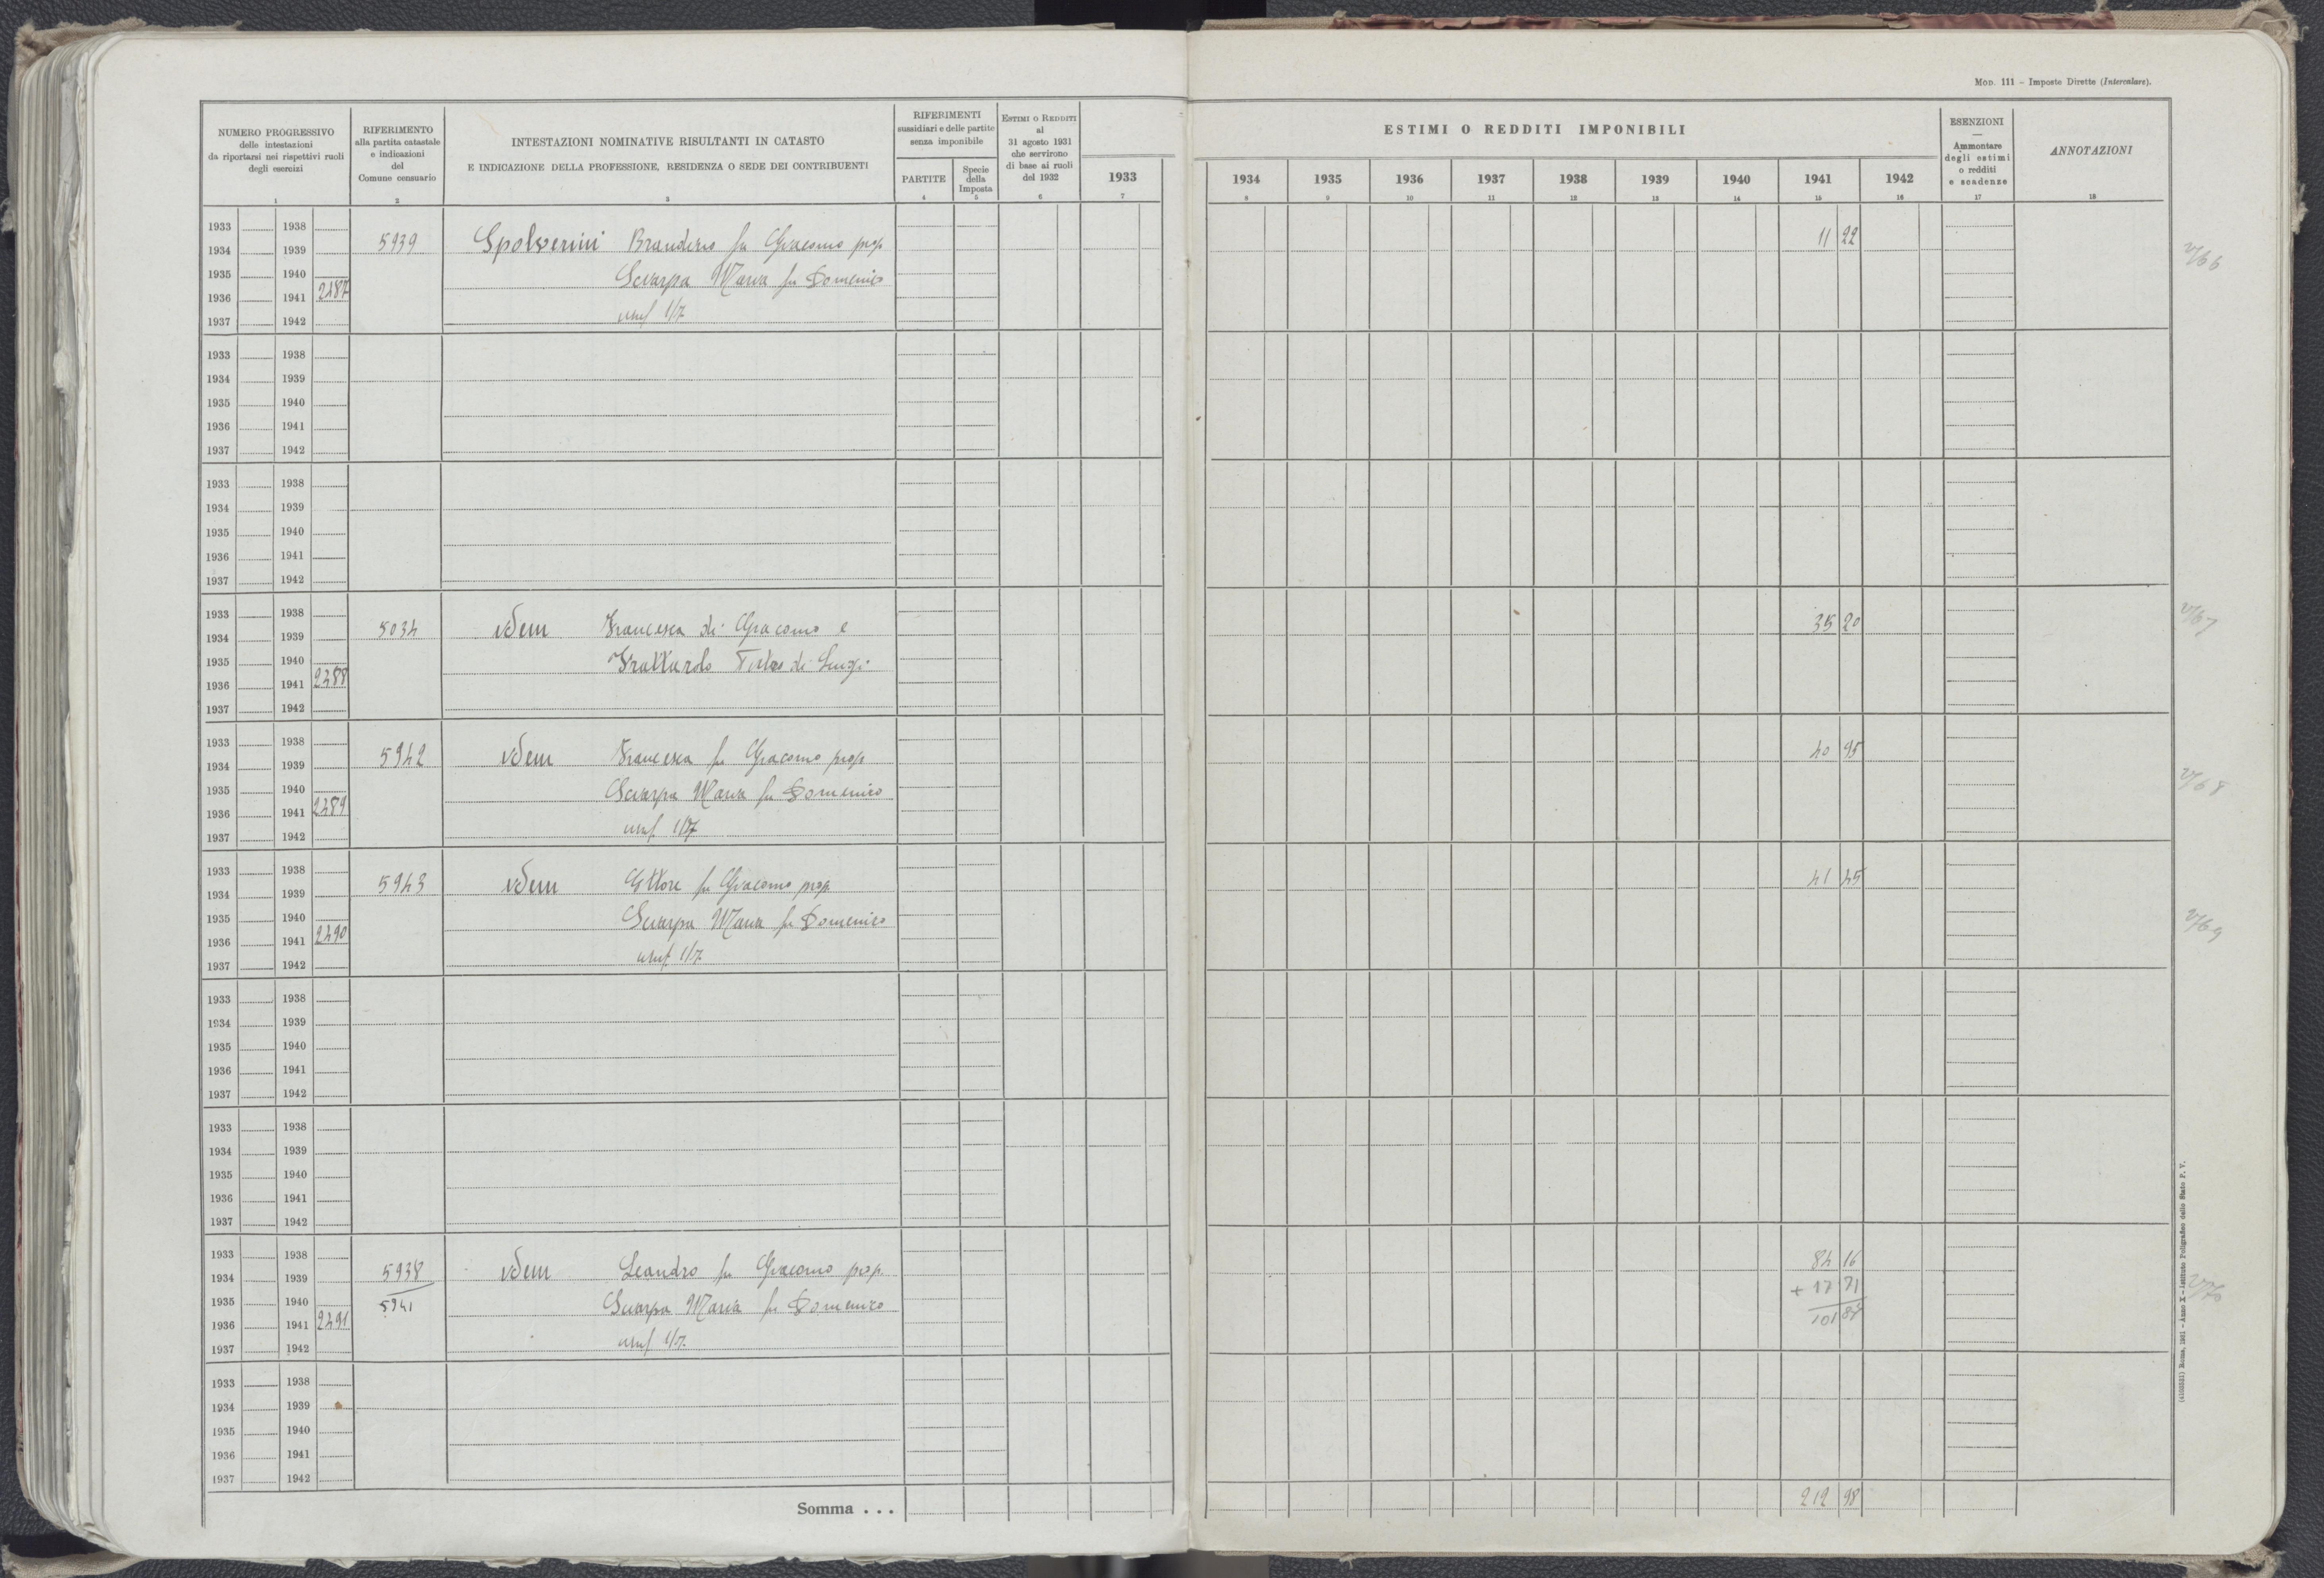 MOD. 111 – Imposte Dirette (Intercalare).
NUMERO PROGRESSIVO
delle intestazioni
da riportarsi nei rispettivi ruoli
degli esercizi
1
RIFERIMENTO
alla partita catastale
e indicazioni
del
Comune censuario
2
INTESTAZIONI NOMINATIVE RISULTANTI IN CATASTO
E INDICAZIONE DELLA PROFESSIONE, RESIDENZA O SEDE DEI CONTRIBUENTI
3
RIFERIMENTI
sussidiari e delle partite
senza imponibile
PARTITE
4
Specie
della
Imposta
5
ESTIMI O REDDITI
al
31 agosto 1931
che servirono
di base ai ruoli
del 1932
6
ESTIMI O REDDITI IMPONIBILI
1933 1934 1935 1936 1937 1938 1939 1940 1941 1942
7 8 9 10 11 12 13 14 15 16
ESENZIONI
—
Ammontare
degli estimi
o redditi
e scadenze
17
ANNOTAZIONI
18
1933 1938
5939 Spolverini Branderio fu Giacomo prop 11 22
1934 1939
1935 1940 Sciarpa Maria fu Domenico
1936 1941 2487
1937 1942 usuf 1/7
1933 1938
1934 1939
1935 1940
1936 1941
1937 1942
1933 1938
1934 1939
1935 1940
1936 1941
1937 1942
1933 1938
1934 1939 5034 idem Francesca di Giacomo e 35 20
1935 1940 di Luigi
1936 1941 2488
1937 1942
1933 1938
1934 1939 5942 idem Francesca fu Giacomo prop 40 95
1935 1940 Sciarpa Maria fu Domenico
1936 1941 2489
1937 1942 usuf 1/7
1933 1938
1934 1939 5943 idem Ettore fu Giacomo prop 41 45
1935 1940 Sciarpa Maria fu Domenico
1936 1941 2490
1937 1942 usuf 1/7
1933 1938
1934 1939
1935 1940
1936 1941
1937 1942
1933 1938
1934 1939
1935 1940
1936 1941
1937 1942
1933 1938 84 16
1934 1939 5938 idem Leandro fu Giacomo prop + 17 71
1935 1940 5941 Sciarpa Maria fu Domenico 101 87
1936 1941 2491
1937 1942 usuf 1/7
1933 1938
1934 1939
1935 1940
1936 1941
1937 1942
Somma . . . 212 98
(4103531) Roma, 1931 – Anno X – Istituto Poligrafico dello Stato P. V.